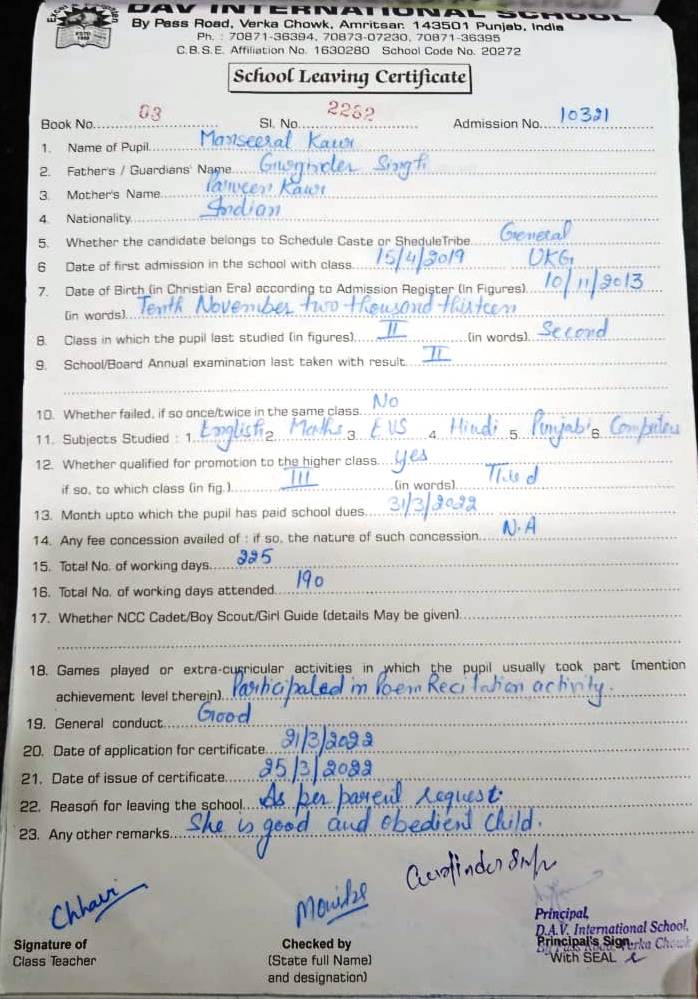 DAV INTERNATIONAL SCHOOL
By Pass Road, Verka Chowk, Amritsar. 143501 Punjab, India
Ph. : 70871-36394, 70873-07230, 70871-36395
C.B.S.E. Affiliation No. 1630280 School Code No. 20272
School Leaving Certificate
Book No. 03 Sl. No. 2262 Admission No. 10321
1. Name of Pupil Manseerat Kaur
2. Father's / Guardians' Name Gurginder Singh
3. Mother's Name Parveen Kaur
4. Nationality Indian
5. Whether the candidate belongs to Schedule Caste or SheduleTribe General
6 Date of first admission in the school with class 15/4/2019 UKG
7. Date of Birth (in Christian Era) according to Admission Register (In Figures) 10/11/2013
(in words) Tenth November two thousand thirteen
8. Class in which the pupil last studied (in figures) II (in words) Second
9. School/Board Annual examination last taken with result II
10. Whether failed, if so once/twice in the same class No
11. Subjects Studied : 1. English 2. Maths 3. EVS 4. Hindi 5. Punjabi 6. Computers
12. Whether qualified for promotion to the higher class yes
if so, to which class (in fig.) III (in words) Third
13. Month upto which the pupil has paid school dues 31/3/2022
14. Any fee concession availed of : if so, the nature of such concession N.A
15. Total No. of working days 225
16. Total No. of working days attended 190
17. Whether NCC Cadet/Boy Scout/Girl Guide (details May be given)
18. Games played or extra-curricular activities in which the pupil usually took part (mention
achievement level therein) Participated in Poem Recitation activity.
19. General conduct Good
20. Date of application for certificate 21/3/2022
21. Date of issue of certificate 25/3/2022
22. Reason for leaving the school As per parent request.
23. Any other remarks She is good and obedient child.
Chhavi
Principal,
D.A.V. International School,
Signature of Checked by Principal's Sign.
Class Teacher (State full Name) With SEAL
and designation)